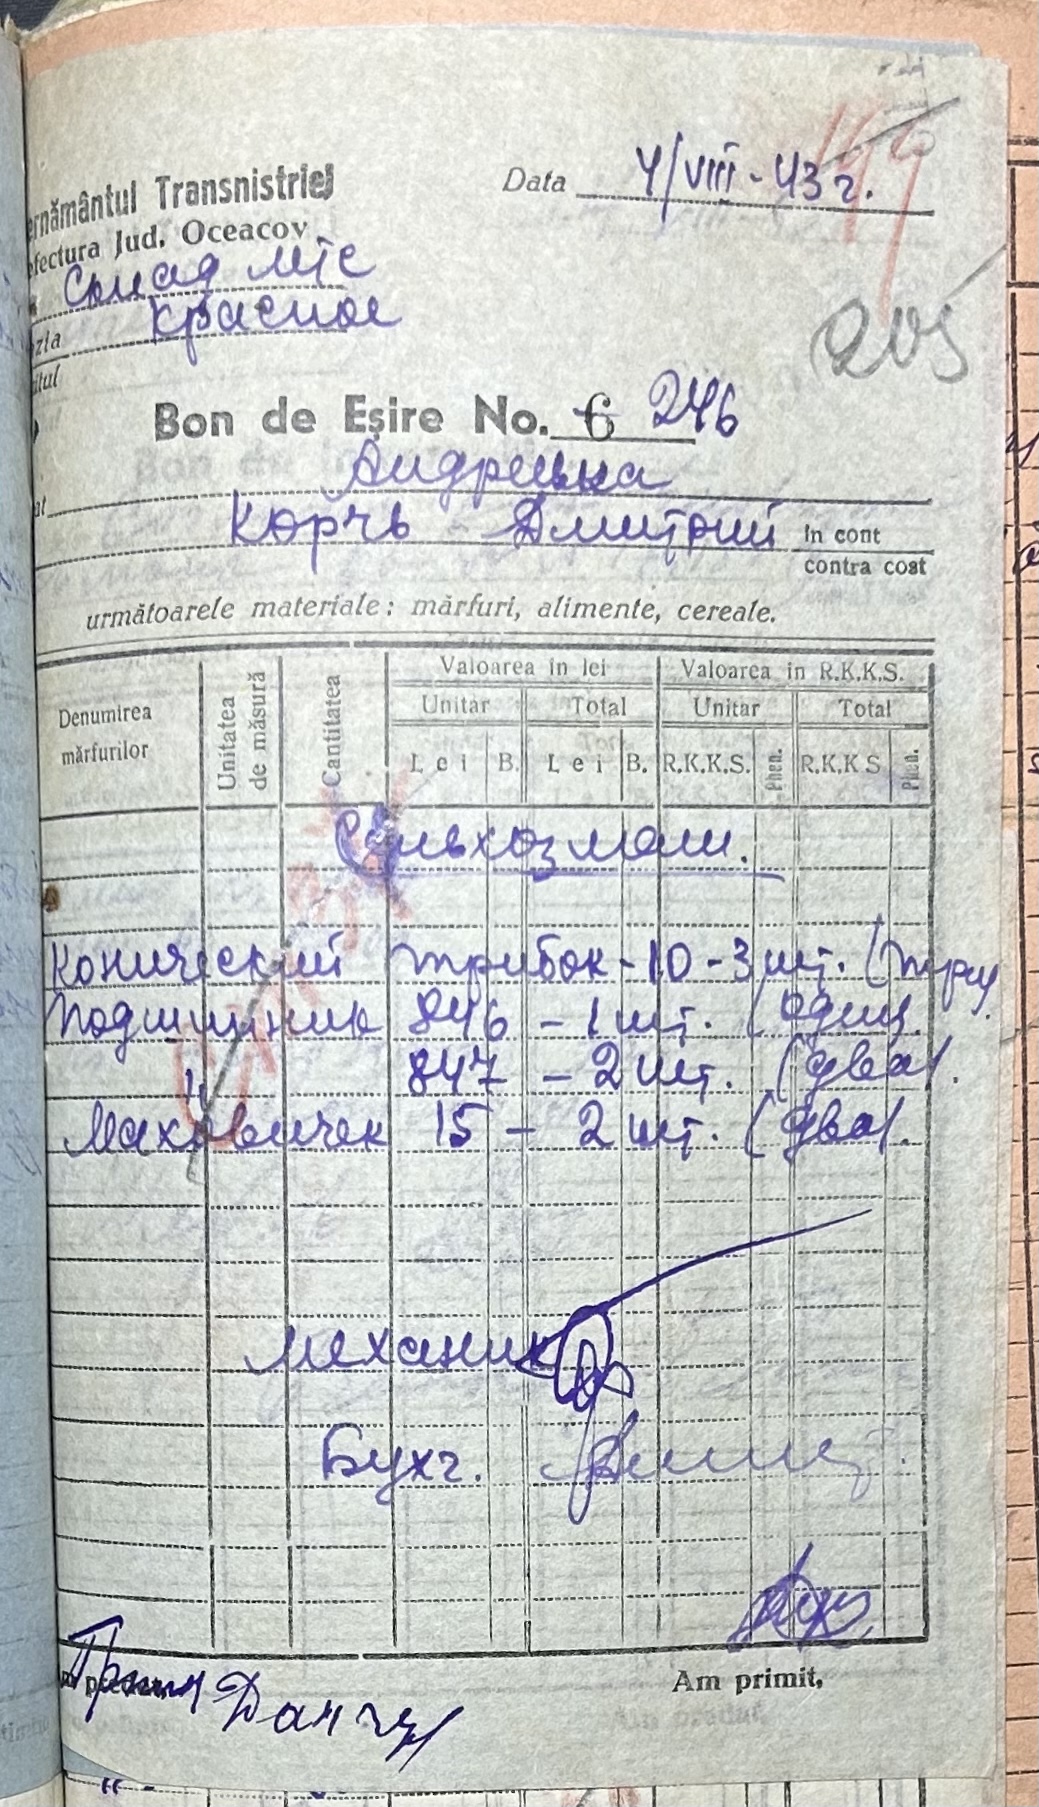 ernământul Transnistriei
efectura Jud. Oceacov
Data 4/VIII - 43 г.
Склад МТС
Красное
205
Bon de Eşire No. 6 246
Андреевка
Корчь - Дмитрий in cont
contra cost
următoarele materiale: mărfuri, alimente, cereale.
Denumirea mărfurilor Unitatea de măsură Cantitatea Valoarea in lei Valoarea in R.K.K.S.
Unitar Total Unitar Total
Lei B. Lei B. R.K.K.S. Phen. R.K.K.S Phen.
Сельхозмаш.
Конический трибок - 10 - 3 шт. (три)
Подшипник 846 - 1 шт. (один)
" 847 - 2 шт. (два).
Маховичек 15 - 2 шт. (два).
Механик
Бухг.
Am primit,